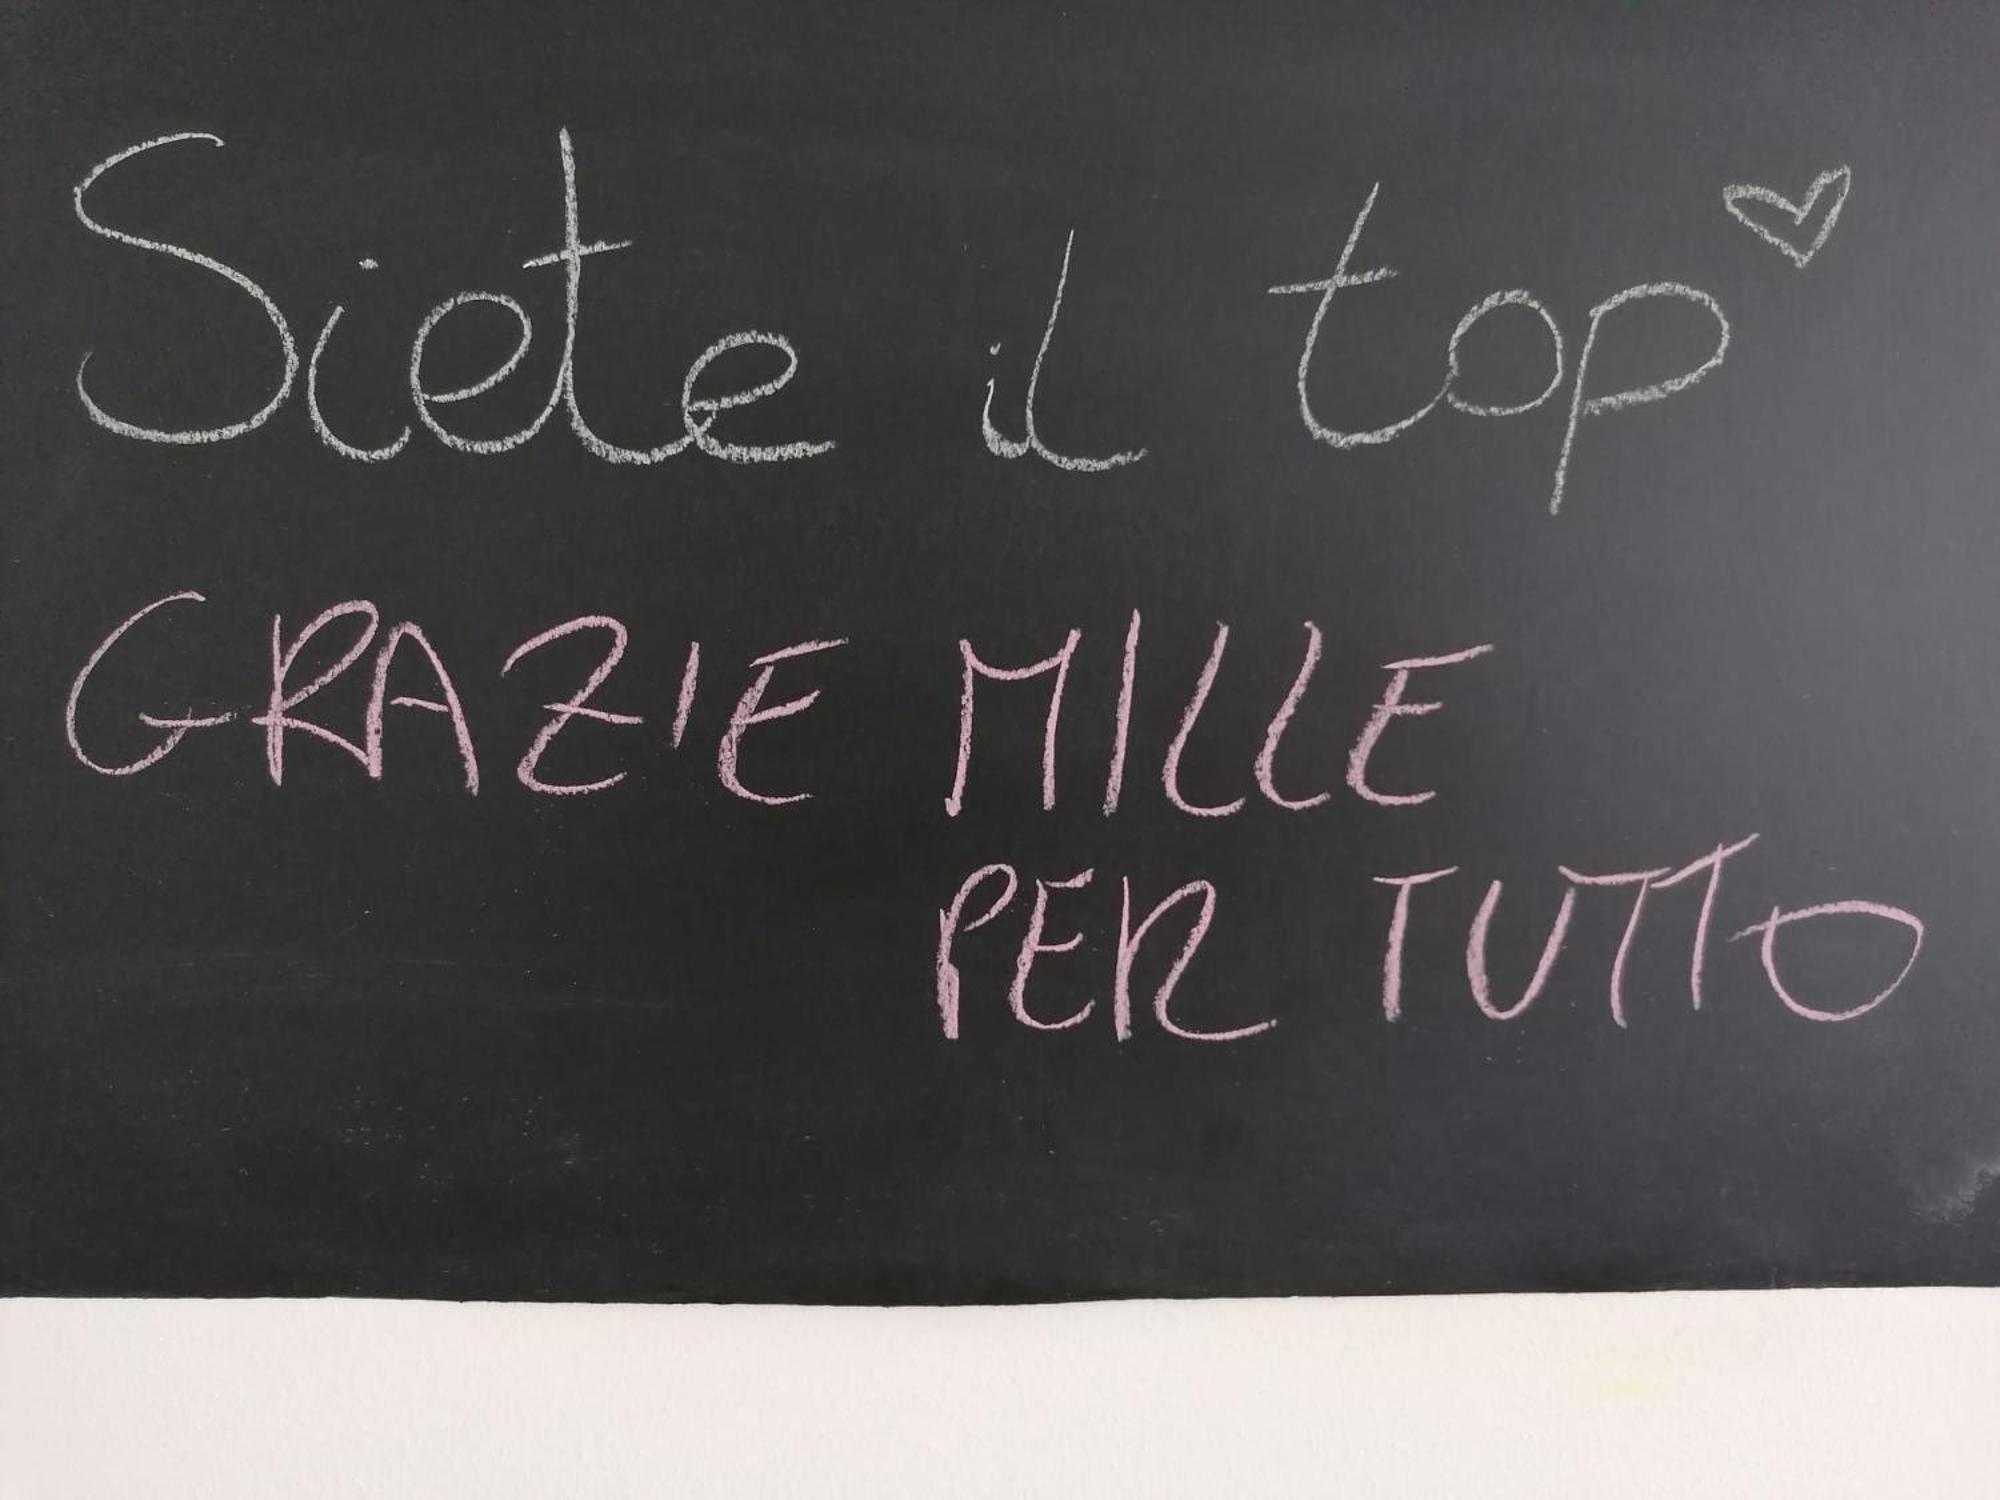 Siete il top
GRAZIE MILLE
PER TUTTO